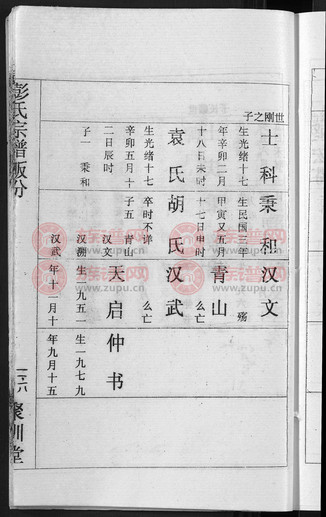 世刚之子
士科
生光绪十七
年辛卯二月
十八日未时
袁氏
生光绪十七
辛卯五月十
二日辰时
子一 秉和
秉和
生民国三年
甲寅又五月
十七日申时
胡氏
卒时不详
子五 青山
汉文
汉渊
汉武
汉文
殇
青山
么亡
汉武
么亡
天启
生一九五一
年十二月十
仲书
生一九七九
年九月十五
彭氏宗谱
聚训堂
族谱网
www.zupu.cn